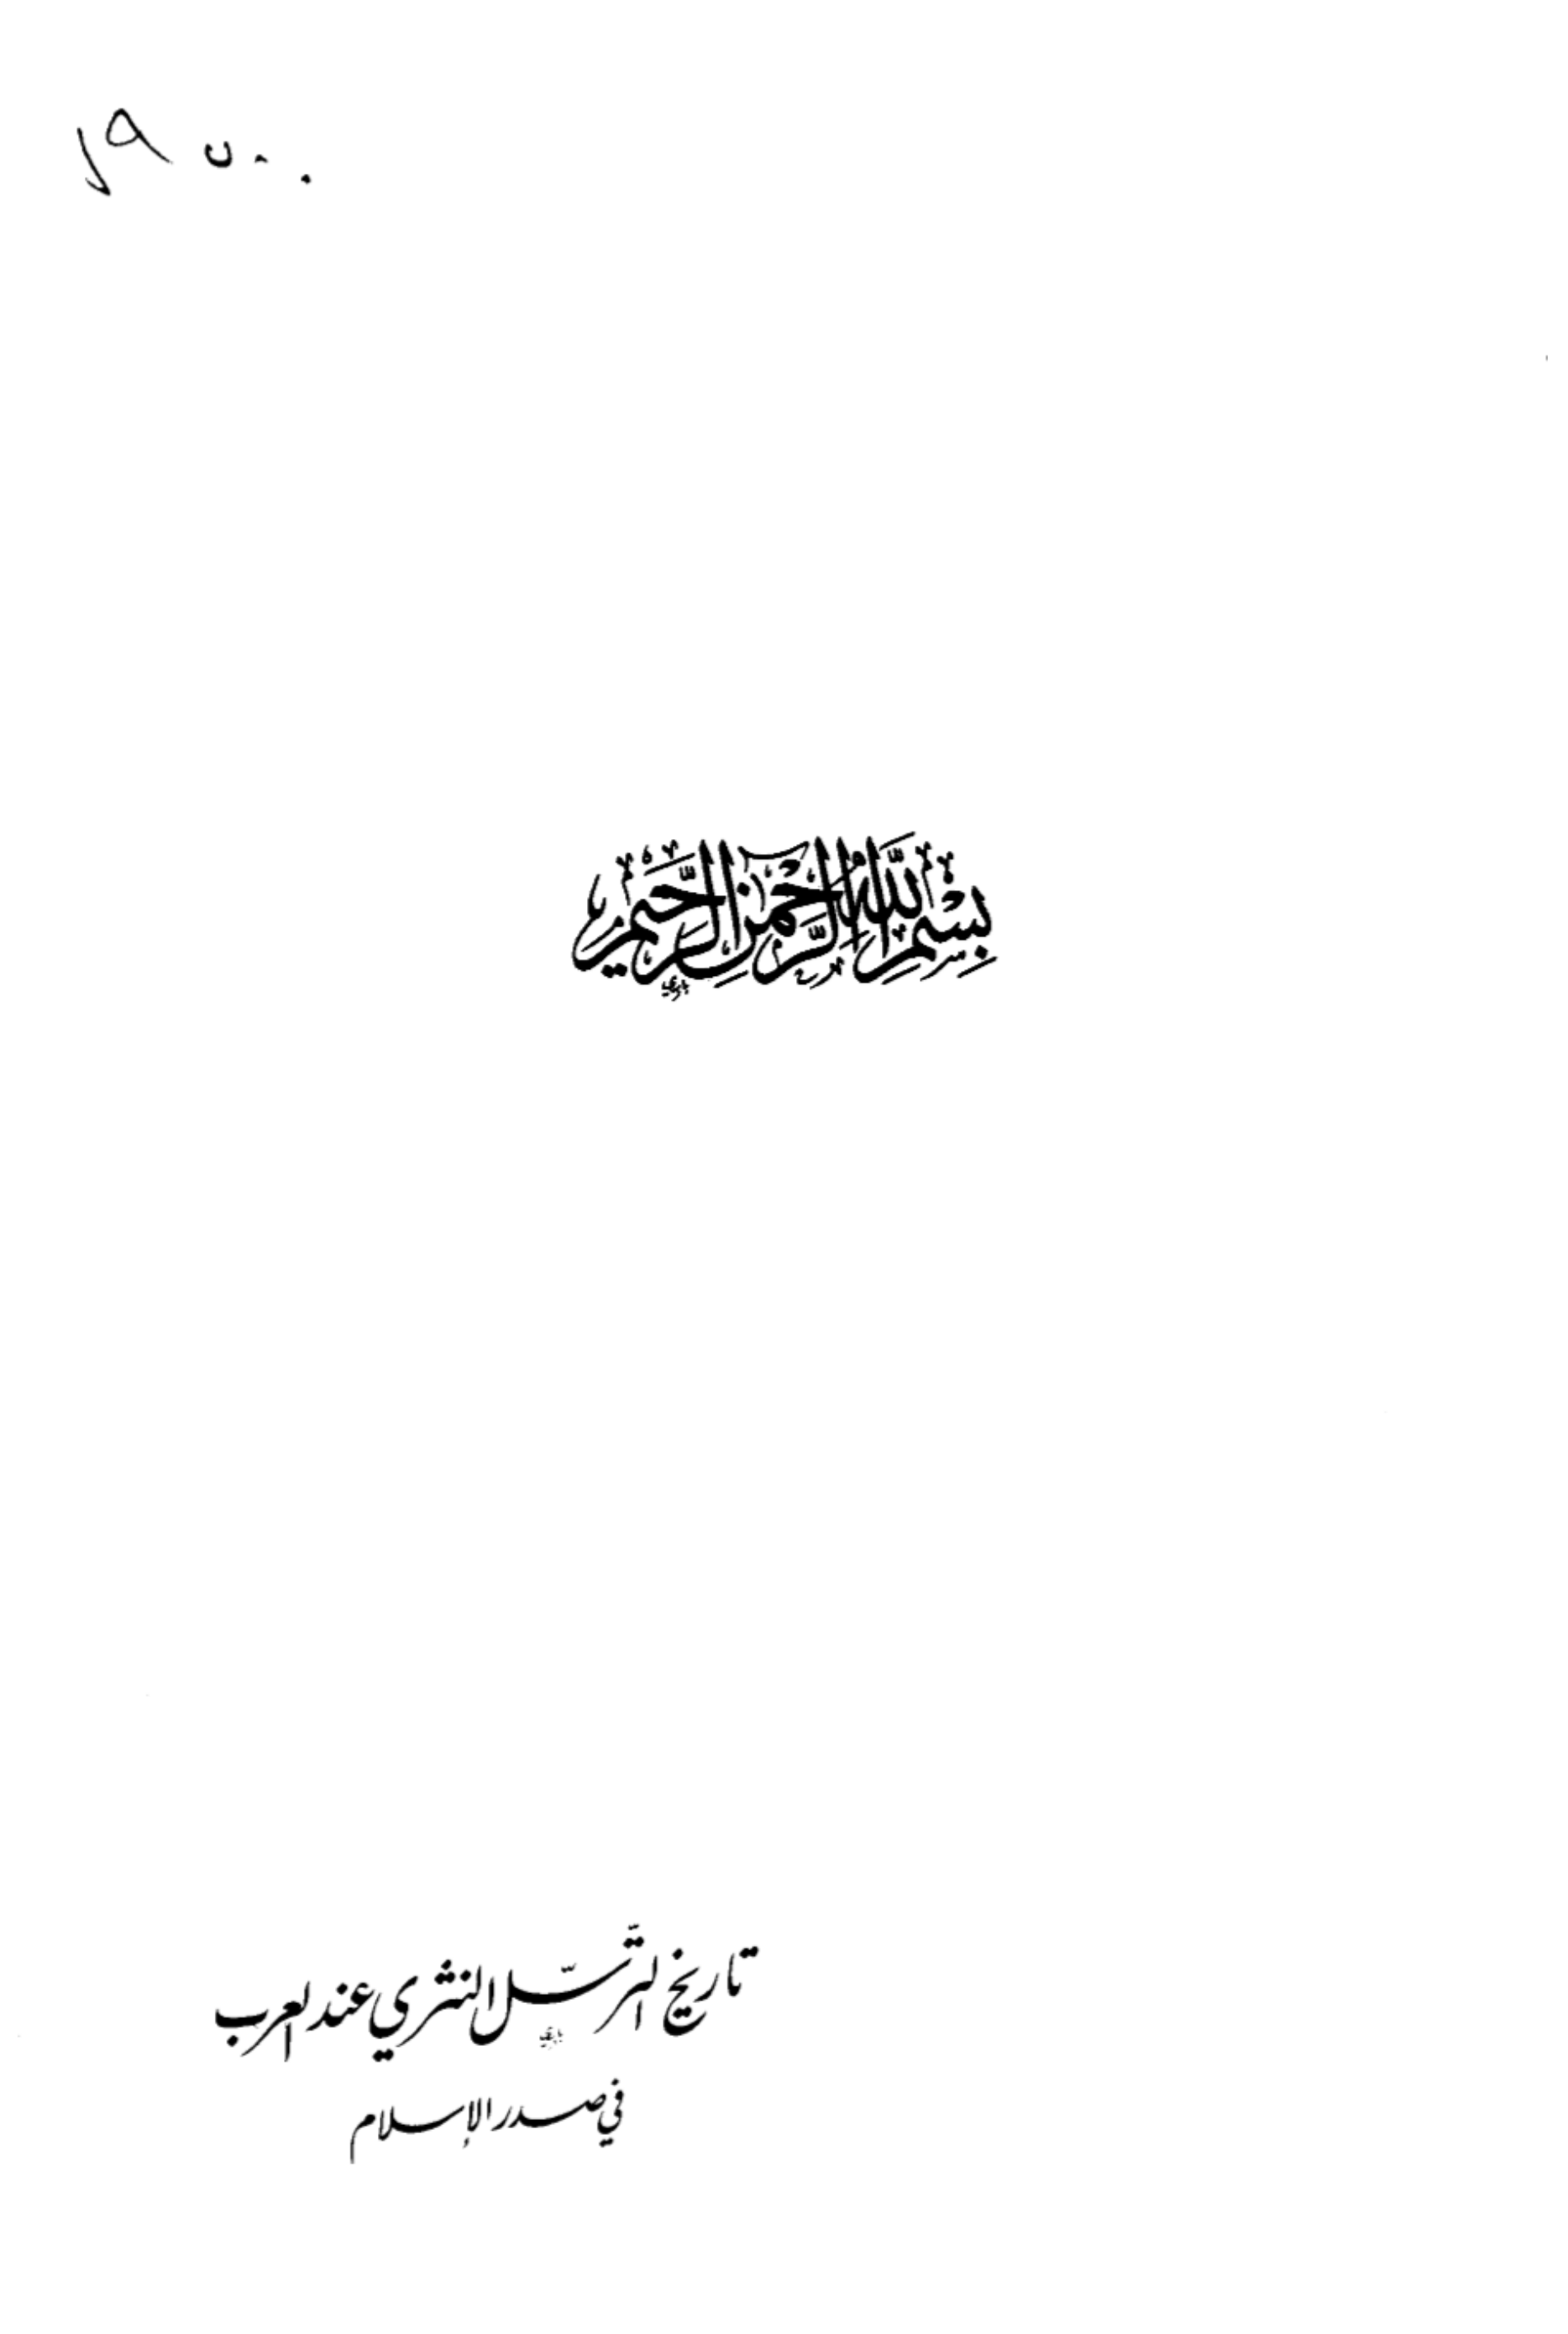 بِسْمِ اللَّهِ الرَّحْمَٰنِ الرَّحِيمِ
تاريخ الترسّل النثري عند العرب
في صدر الإسلام